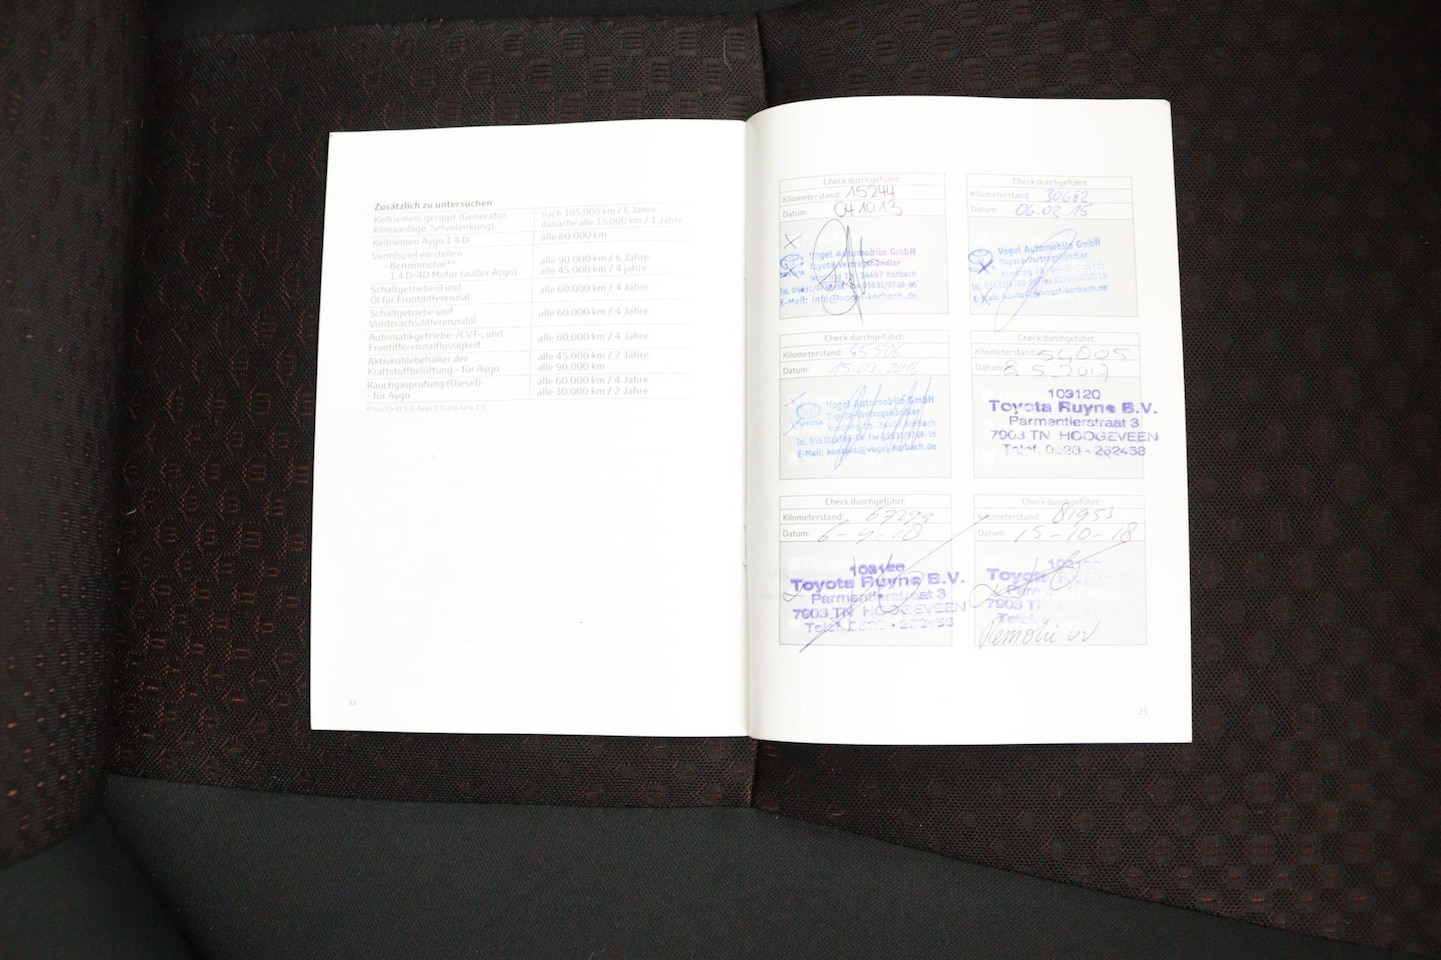 Zusätzlich zu untersuchen
Keilriemen, gerippt (Generator, nach 105.000 km / 6 Jahre
Klimaanlage, Servolenkung) danache alle 15.000 km / 1 Jahre
Keilriemen Aygo 1.4 D alle 60.000 km
Ventilspiel einstellen
- Benzinmotor** alle 90.000 km / 6 Jahre
- 1.4 D-4D Motor (außer Aygo) alle 45.000 km / 4 Jahre
Schaltgetriebeöl und alle 60.000 km / 4 Jahre
Öl für Frontdifferenzial
Schaltgetriebe und alle 60.000 km / 4 Jahre
Vorderachsdifferenzialöl
Automatikgetriebe-/CVT-, und alle 60.000 km / 4 Jahre
Frontdifferenzialflüssigkeit
Aktivkohlebehälter der alle 45.000 km / 2 Jahre
Kraftstoffbelüftung - für Aygo alle 90.000 km
Rauchgasprüfung (Diesel) alle 60.000 km / 4 Jahre
- für Aygo alle 30.000 km / 2 Jahre
22
Check durchgeführt:
Kilometerstand: 15244
Datum: 04 10 13
Vogel Automobile GmbH
Toyota-Vertragshändler
Nordring 19 · 34497 Korbach
E-Mail: info@vogel-korbach.de
Check durchgeführt:
Kilometerstand: 30682
Datum: 06.02 15
Vogel Automobile GmbH
Toyota-Vertragshändler
Korbach
E-Mail: kontakt@vogel-korbach.de
Check durchgeführt:
Kilometerstand: 45506
Datum: 15.03.2016
TOYOTA
Vogel Automobile GmbH
Toyota-Vertragshändler
34497 Korbach
E-Mail: kontakt@vogel-korbach.de
Check durchgeführt:
Kilometerstand: 54805
Datum: 8.5.2017
103120
Toyota Ruyne B.V.
Parmentierstraat 3
7903 TN HOOGEVEEN
Telef. 0528 - 262458
Check durchgeführt:
Kilometerstand: 67299
Datum: 6-4-18
103120
Toyota Ruyne B.V.
Parmentierstraat 3
7903 TN HOOGEVEEN
Telef. 0528 - 262458
Check durchgeführt:
Kilometerstand: 81953
Datum: 15-10-18
Toyota
7903 TN
Telef.
23